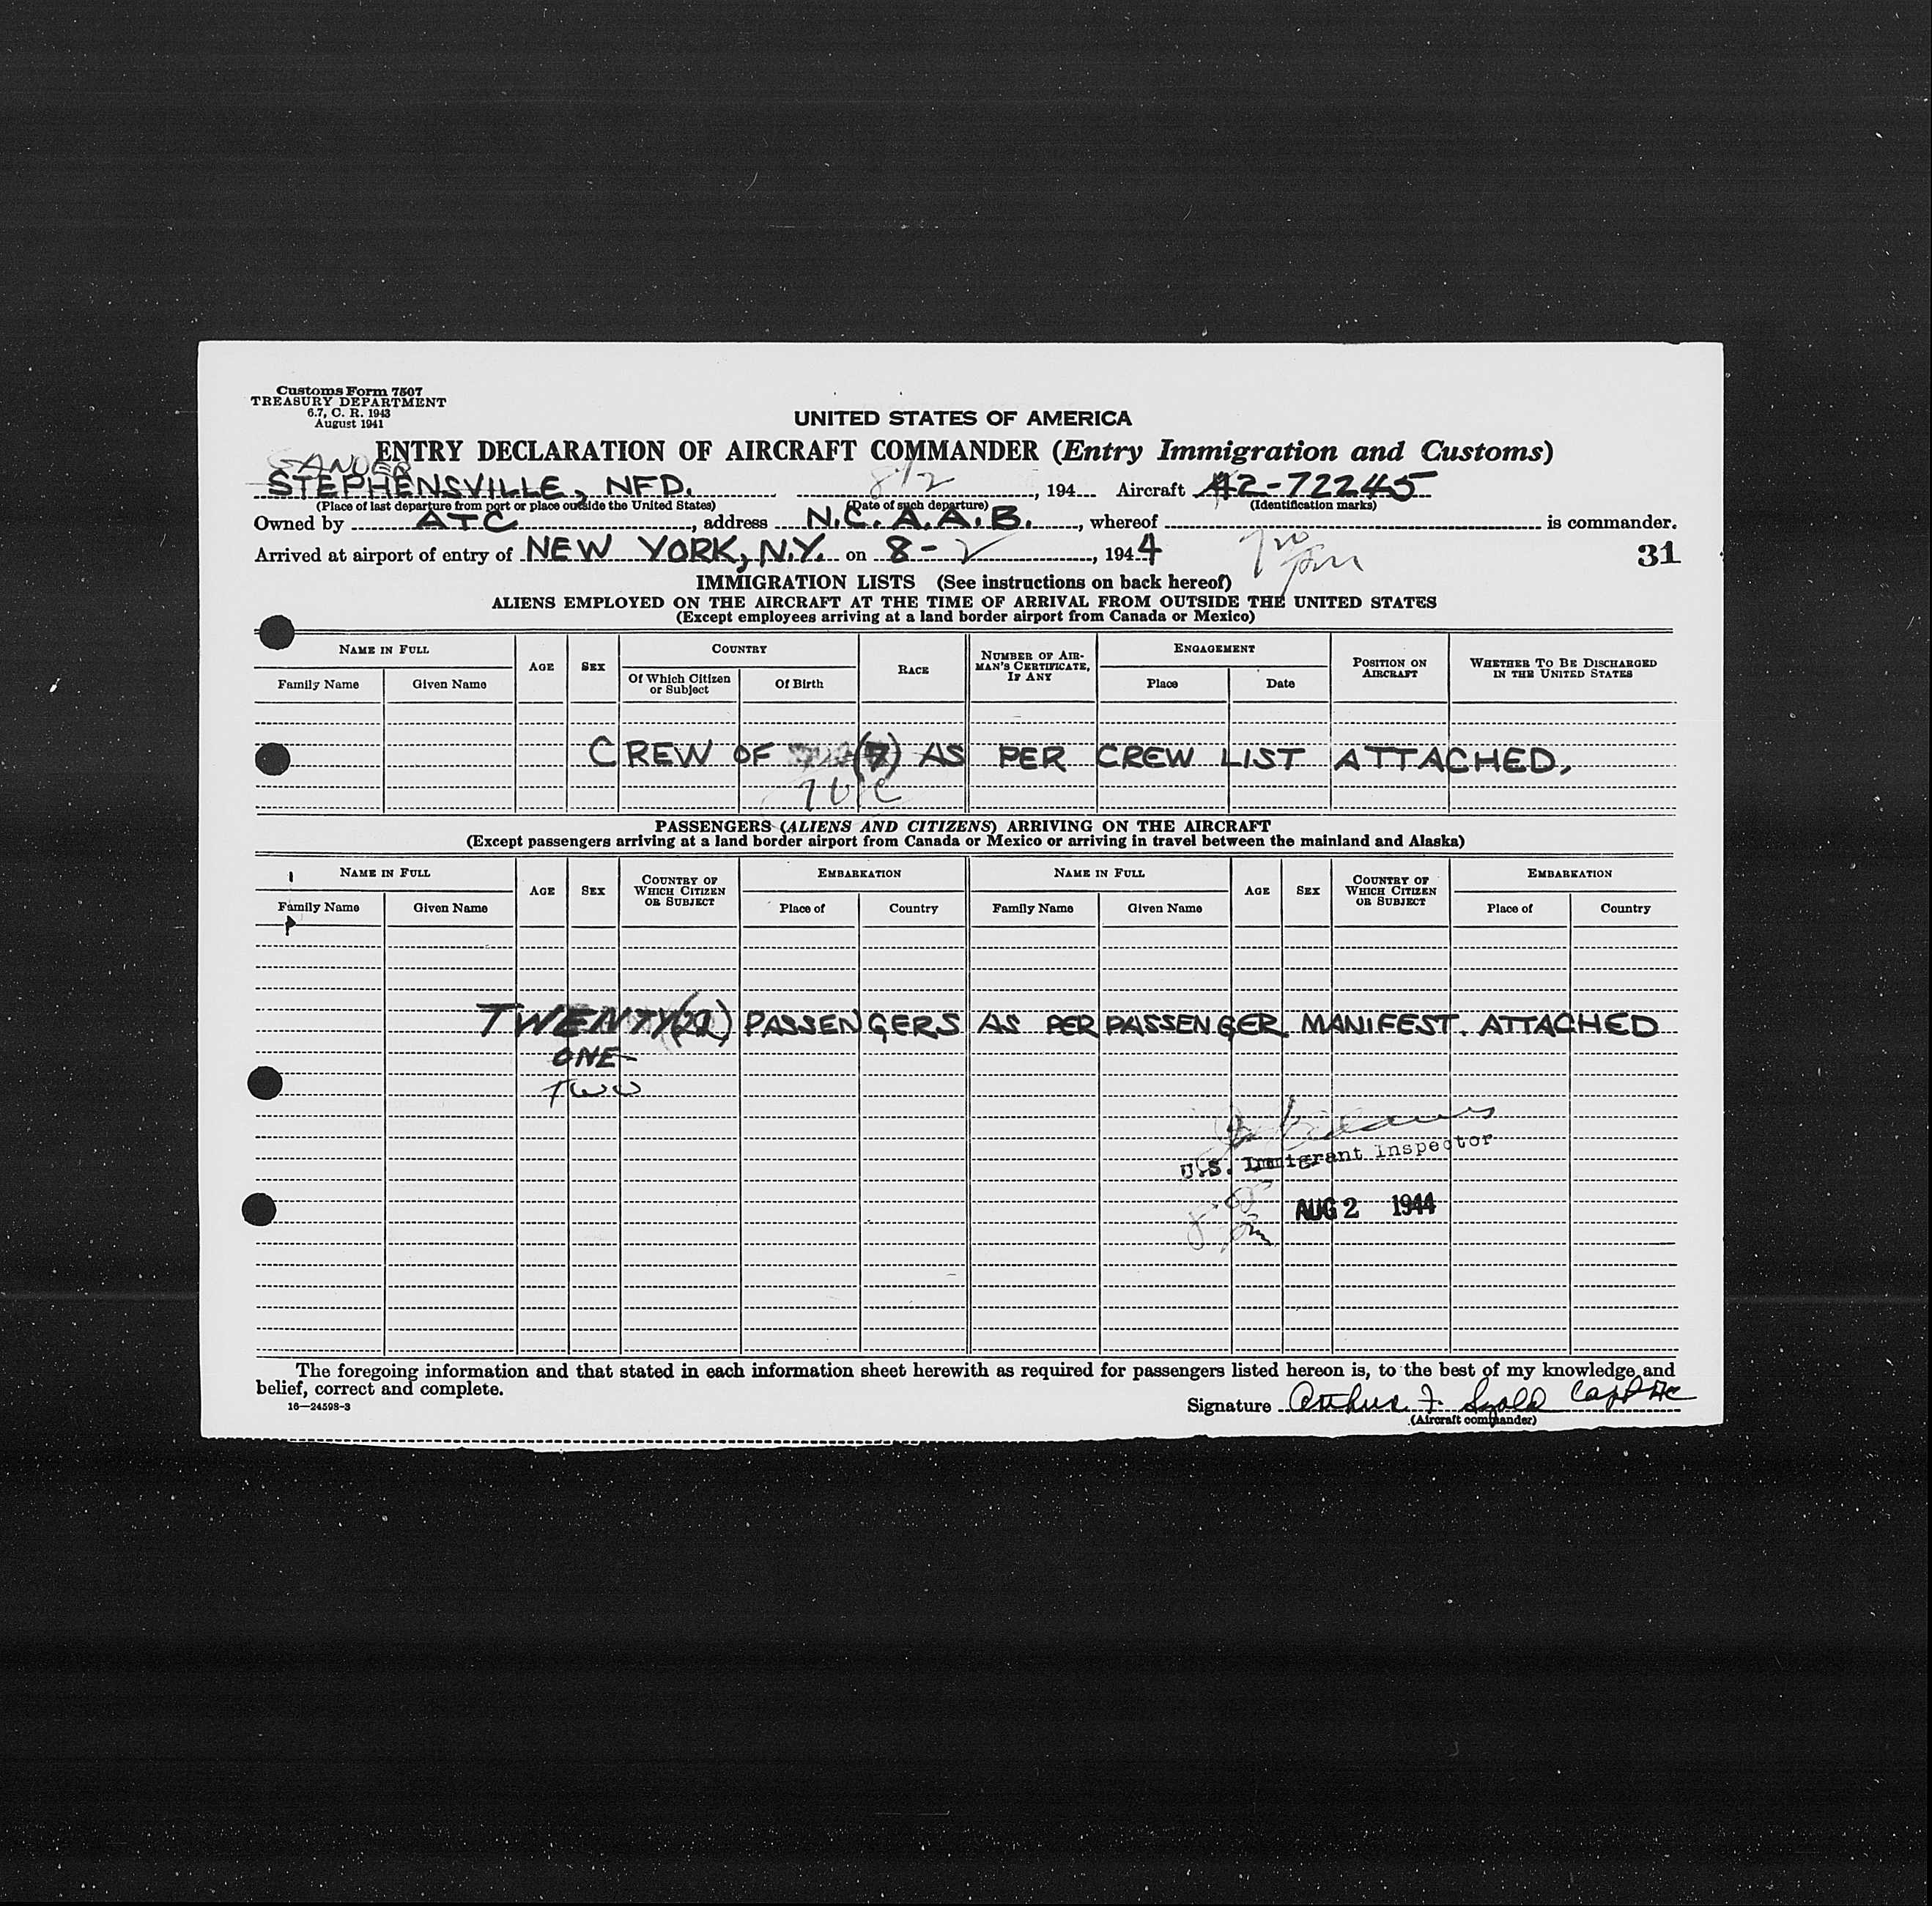 Customs Form 7507
TREASURY DEPARTMENT
6.7, C. R. 1943
August 1941
UNITED STATES OF AMERICA
ENTRY DECLARATION OF AIRCRAFT COMMANDER (Entry Immigration and Customs)
GANDER
STEPHENSVILLE, NFD. 8/2, 194 Aircraft 42-72245
(Place of last departure from port or place outside the United States) (Date of such departure) (Identification marks)
Owned by ATC, address N.C.A.A.B., whereof is commander.
Arrived at airport of entry of NEW YORK, N.Y. on 8-2, 1944 7 20 pm 31
IMMIGRATION LISTS (See instructions on back hereof)
ALIENS EMPLOYED ON THE AIRCRAFT AT THE TIME OF ARRIVAL FROM OUTSIDE THE UNITED STATES
(Except employees arriving at a land border airport from Canada or Mexico)
NAME IN FULL
Family Name Given Name
AGE
SEX
COUNTRY
Of Which Citizen or Subject
Of Birth
RACE
NUMBER OF AIRMAN'S CERTIFICATE, IF ANY
ENGAGEMENT
Place Date
POSITION ON AIRCRAFT
WHETHER TO BE DISCHARGED IN THE UNITED STATES
CREW OF (7) AS PER CREW LIST ATTACHED.
PASSENGERS (ALIENS AND CITIZENS) ARRIVING ON THE AIRCRAFT
(Except passengers arriving at a land border airport from Canada or Mexico or arriving in travel between the mainland and Alaska)
NAME IN FULL
Family Name Given Name
AGE
SEX
COUNTRY OF WHICH CITIZEN OR SUBJECT
EMBARKATION
Place of Country
NAME IN FULL
Family Name Given Name
AGE
SEX
COUNTRY OF WHICH CITIZEN OR SUBJECT
EMBARKATION
Place of Country
TWENTY PASSENGERS AS PER PASSENGER MANIFEST. ATTACHED
ONE
TWO
U.S. Immigrant Inspector
AUG 2 1944
The foregoing information and that stated in each information sheet herewith as required for passengers listed hereon is, to the best of my knowledge and
belief, correct and complete.
16—24598-3
Signature Arthur F. Capt AC
(Aircraft commander)